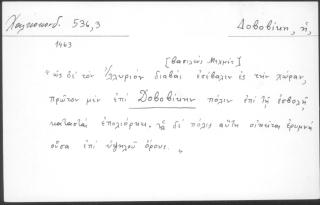 Χαλκοκονδ. 536,3 Δοβοβίκη, ἡ,
1463
[βασιλεὺς Μεχμέτ]
"ὡς δὲ τὸν Ἰλλυριὸν διαβὰς ἐσέβαλεν ἐς τὴν χώραν,
πρῶτον μὲν ἐπὶ Δοβοβίκην πόλιν ἐπὶ τῇ ἐσβολῇ
καταστὰς ἐπολιόρκει. ἡ δὲ πόλις αὕτη οἰκεῖται ἐρυμνὴ
οὖσα ἐπὶ ὑψηλοῦ ὄρους. "